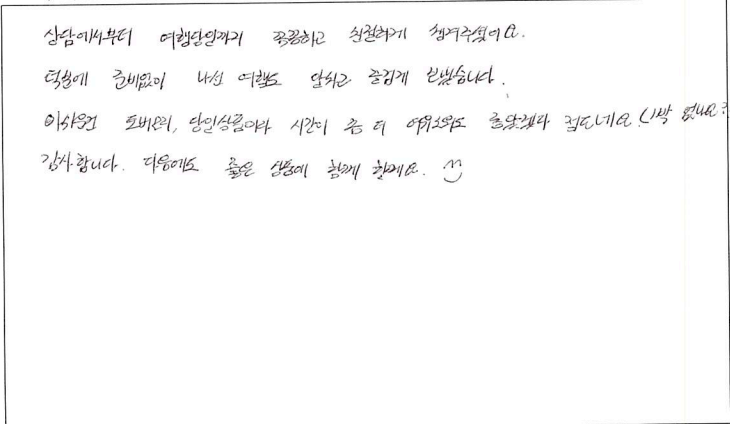 상담에서부터 여행당일까지 꼼꼼하고 친절하게 챙겨주셨어요.
덕분에 준비없이 나선 여행도 알차고 즐겁게 보냈습니다.
아쉬운건 당일상품이라 시간이 좀 더 여유로워도 좋았겠다 정도네요. (1박 없나요?
감사합니다. 다음에도 좋은 상품에 함께 할게요.